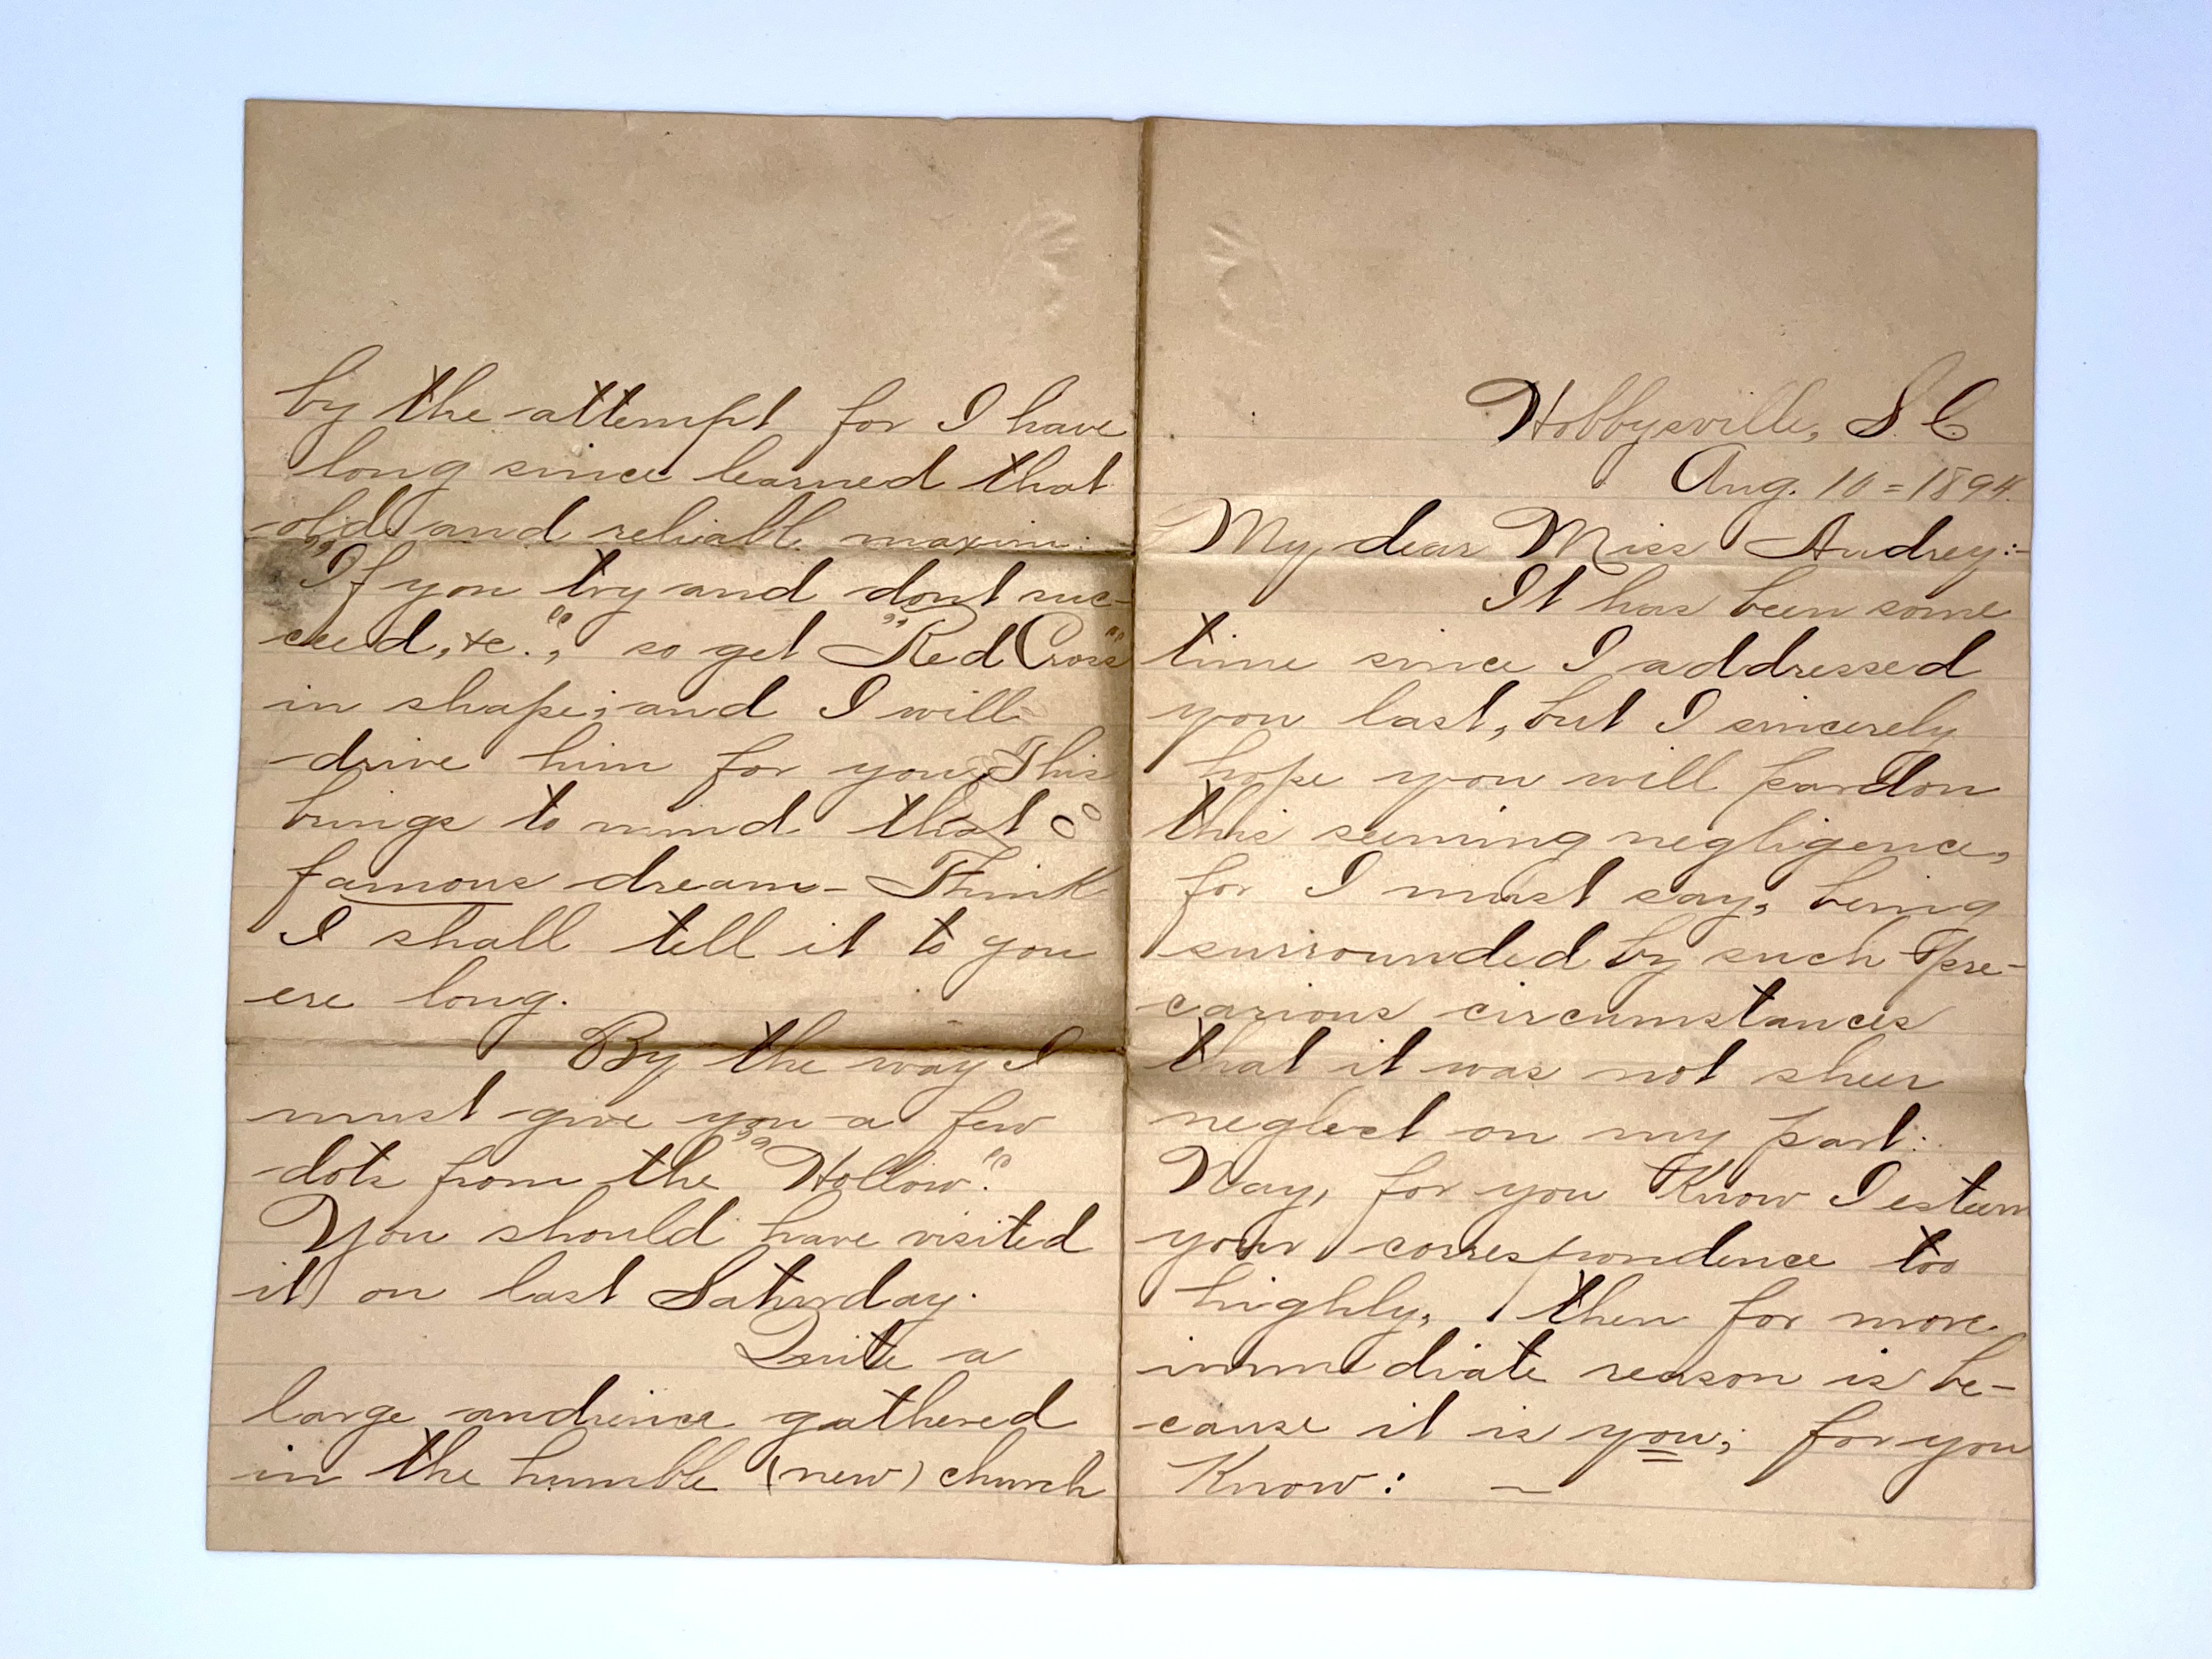 Hobbysville, S.C
Aug. 10 = 1894.
My dear Miss Audrey:-
It has been some
time since I addressed
you last, but I sincerely
hope you will pardon
this seeming negligence,
for I must say, being
surrounded by such pre-
carious circumstances
that it was not sheer
neglect on my part:
Nay, for you Know I esteem
your correspondence too
highly, then for more
immediate reason is be-
cause it is you; for you
Know: —
by the attempt for I have
long since learned that
old and reliable maxim:
"If you try and dont suc-
ceed, &c.", so get "Red Cross"
in shape; and I will
drive him for you. This
brings to mind that
famous dream - Think
I shall tell it to you
ere long.
By the way I
must give you a few
dots from the "Hollow".
You should have visited
it on last Saturday.
Quite a
large audience gathered
in the humble (new) church